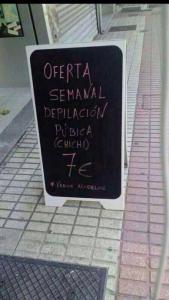 OFERTA
SEMANAL
DEPILACIÓN
PÚBICA
(CHICHI)
7€